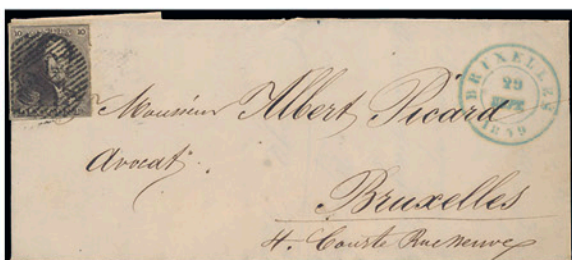 10 10
BRUXELLES
29
1849
Monsieur Albert Picard
Avocat.
Bruxelles
4. Courte Rue Neuve